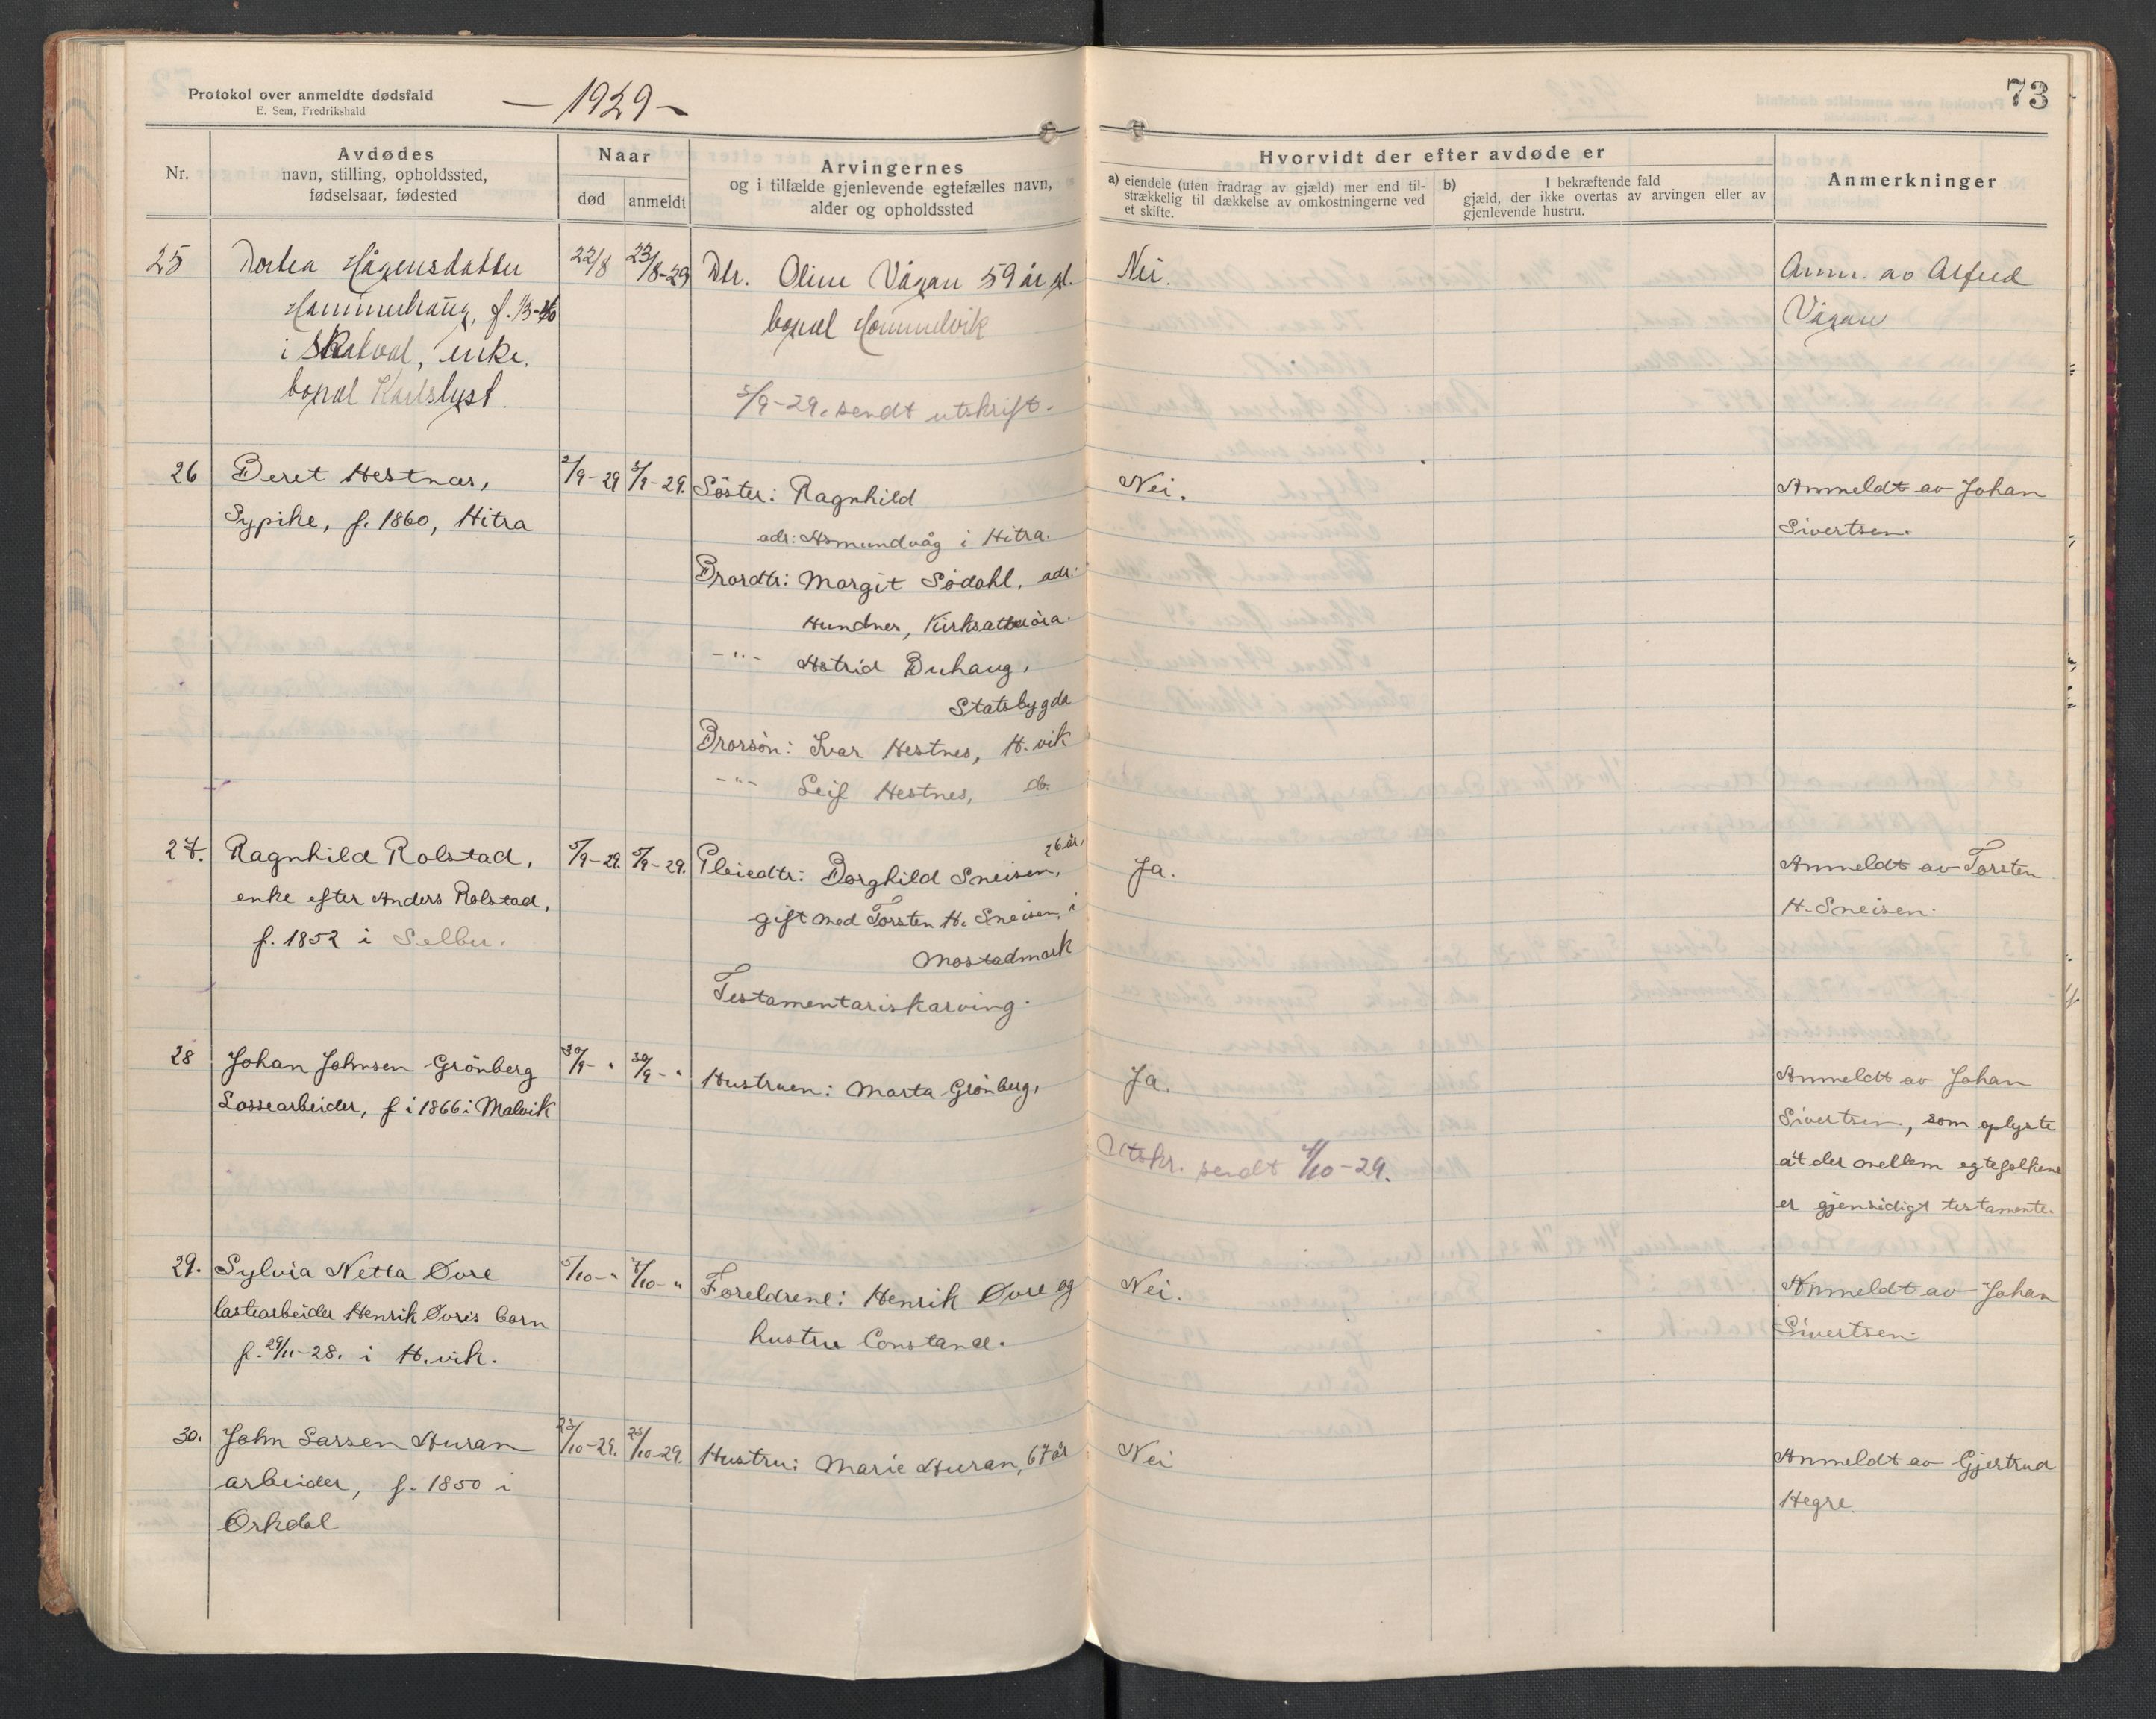 Protokol over anmeldte dødsfald
E. Sem, Fredrikshald
— 1929 —
73
Nr.
Avdødes
navn, stilling, opholdssted,
fødselsaar, fødested
Naar
død
anmeldt
Arvingernes
og i tilfælde gjenlevende egtefælles navn,
alder og opholdssted
Hvorvidt der efter avdøde er
a) eiendele (uten fradrag av gjæld) mer end til-
strækkelig til dækkelse av omkostningerne ved
et skifte.
b) I bekræftende fald
gjæld, der ikke overtas av arvingen eller av
gjenlevende hustru.
Anmerkninger
25
Dortea Hågensdatter
Hammerhaug, f. 1/3-
i Skatval, enke.
bopæl Karlslyst.
22/8
23/8-29
Dtr. Oline Vågan 59 år gl.
bopæl Hommelvik
5/9-29. sendt utskrift.
Nei.
Anm. av Alfred
Vågan
26
Beret Hestnes,
Sypike, f. 1860, Hitra
2/9-29
3/9-29.
Søster: Ragnhild
adr: Asmundvåg i Hitra.
Brordtr: Margit Sødahl, adr:
Hundnes, Kirksæterøra.
-"- Astrid Buhaug,
Statsbygda
Brorsøn: Ivar Hestnes, H.vik
-"- Leif Hestnes, do.
Nei.
Anmeldt av Johan
Sivertsen.
27.
Ragnhild Rolstad,
enke efter Anders Rolstad,
f. 1852 i Selbu.
5/9-29.
5/9-29.
Pleiedtr: Borghild Sneisen, 26 år,
gift med Torsten H. Sneisen, i
Mostadmark
Testamentariskarving.
Ja.
Anmeldt av Torsten
H. Sneisen.
28
Johan Johnsen Grönberg
Lossearbeider, f i 1866 i Malvik
30/9- "
30/9- "
Hustruen: Marta Grönberg,
Ja.
Utskr. sendt 4/10-29.
Anmeldt av Johan
Sivertsen, som oplyste
at der mellem egtefolkene
er gjensidigt testamente.
29.
Sylvia Netta Øvre
lastearbeider Henrik Øvres barn
f. 29/11-28. i H.vik.
5/10- "
7/10- "
Foreldrene: Henrik Øvre og
hustru Constance.
Nei.
Anmeldt av Johan
Sivertsen.
30.
John Larsen Huran
arbeider, f. 1850 i
Orkdal
23/10-29.
25/10-29.
Hustru: Marie Huran, 67 år
Nei
Anmeldt av Gjertrud
Hegre.